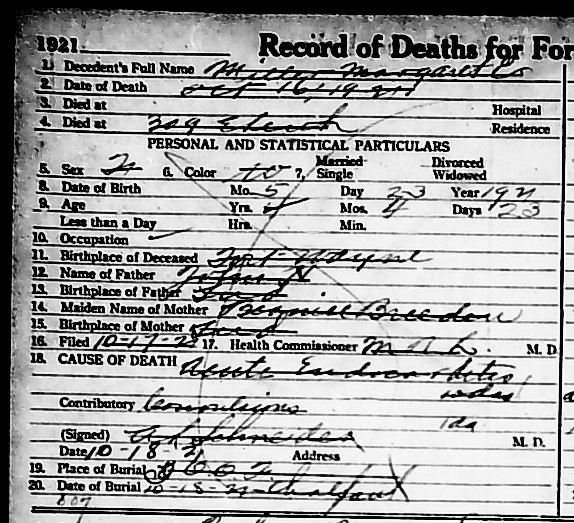 1921. Record of Deaths for For
1. Decedent's Full Name Miller Margaret Co
2. Date of Death Oct 16, 1921
3. Died at Hospital
4. Died at 309 E Residence
PERSONAL AND STATISTICAL PARTICULARS
5. Sex 6. Color W 7. Married Single Divorced Widowed
8. Date of Birth Mo. 5 Day 23 Year 1921
9. Age Yrs. Mos. 4 Days 23
Less than a Day Hrs. Min.
10. Occupation
11. Birthplace of Deceased Fort Wayne
12. Name of Father John H
13. Birthplace of Father Ind
14. Maiden Name of Mother Breedon
15. Birthplace of Mother Ind
16. Filed 10-17-21 17. Health Commissioner M. D.
18. CAUSE OF DEATH Acute Endocarditis
10 das
Contributory Convulsions
1 da
(Signed) A L Schneider M. D.
Date 10-18-21 Address
19. Place of Burial I O O F
20. Date of Burial 10-18-21 Chalfant